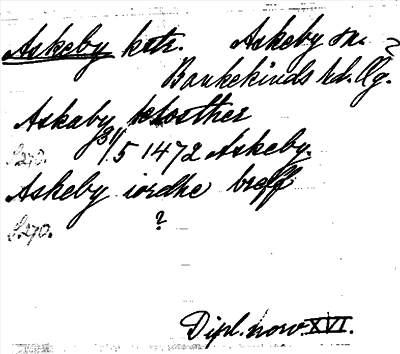 Askeby kstr. Askeby sn.
Bankekinds hd. Ög.
Askaby klosther
31/5 1472 Askeby.
Askeby iordhe breff
?
Dipl. norv. XVI.